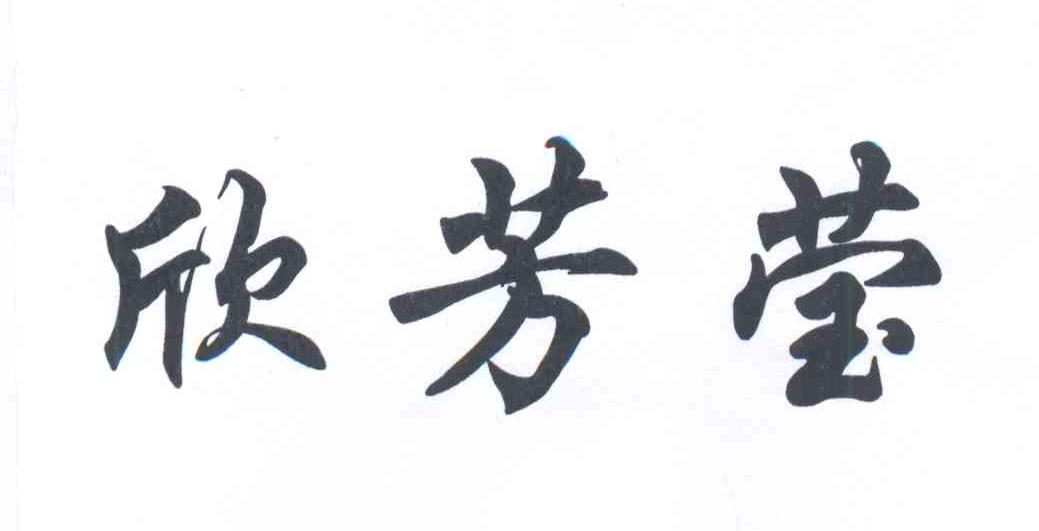 欣芳莹